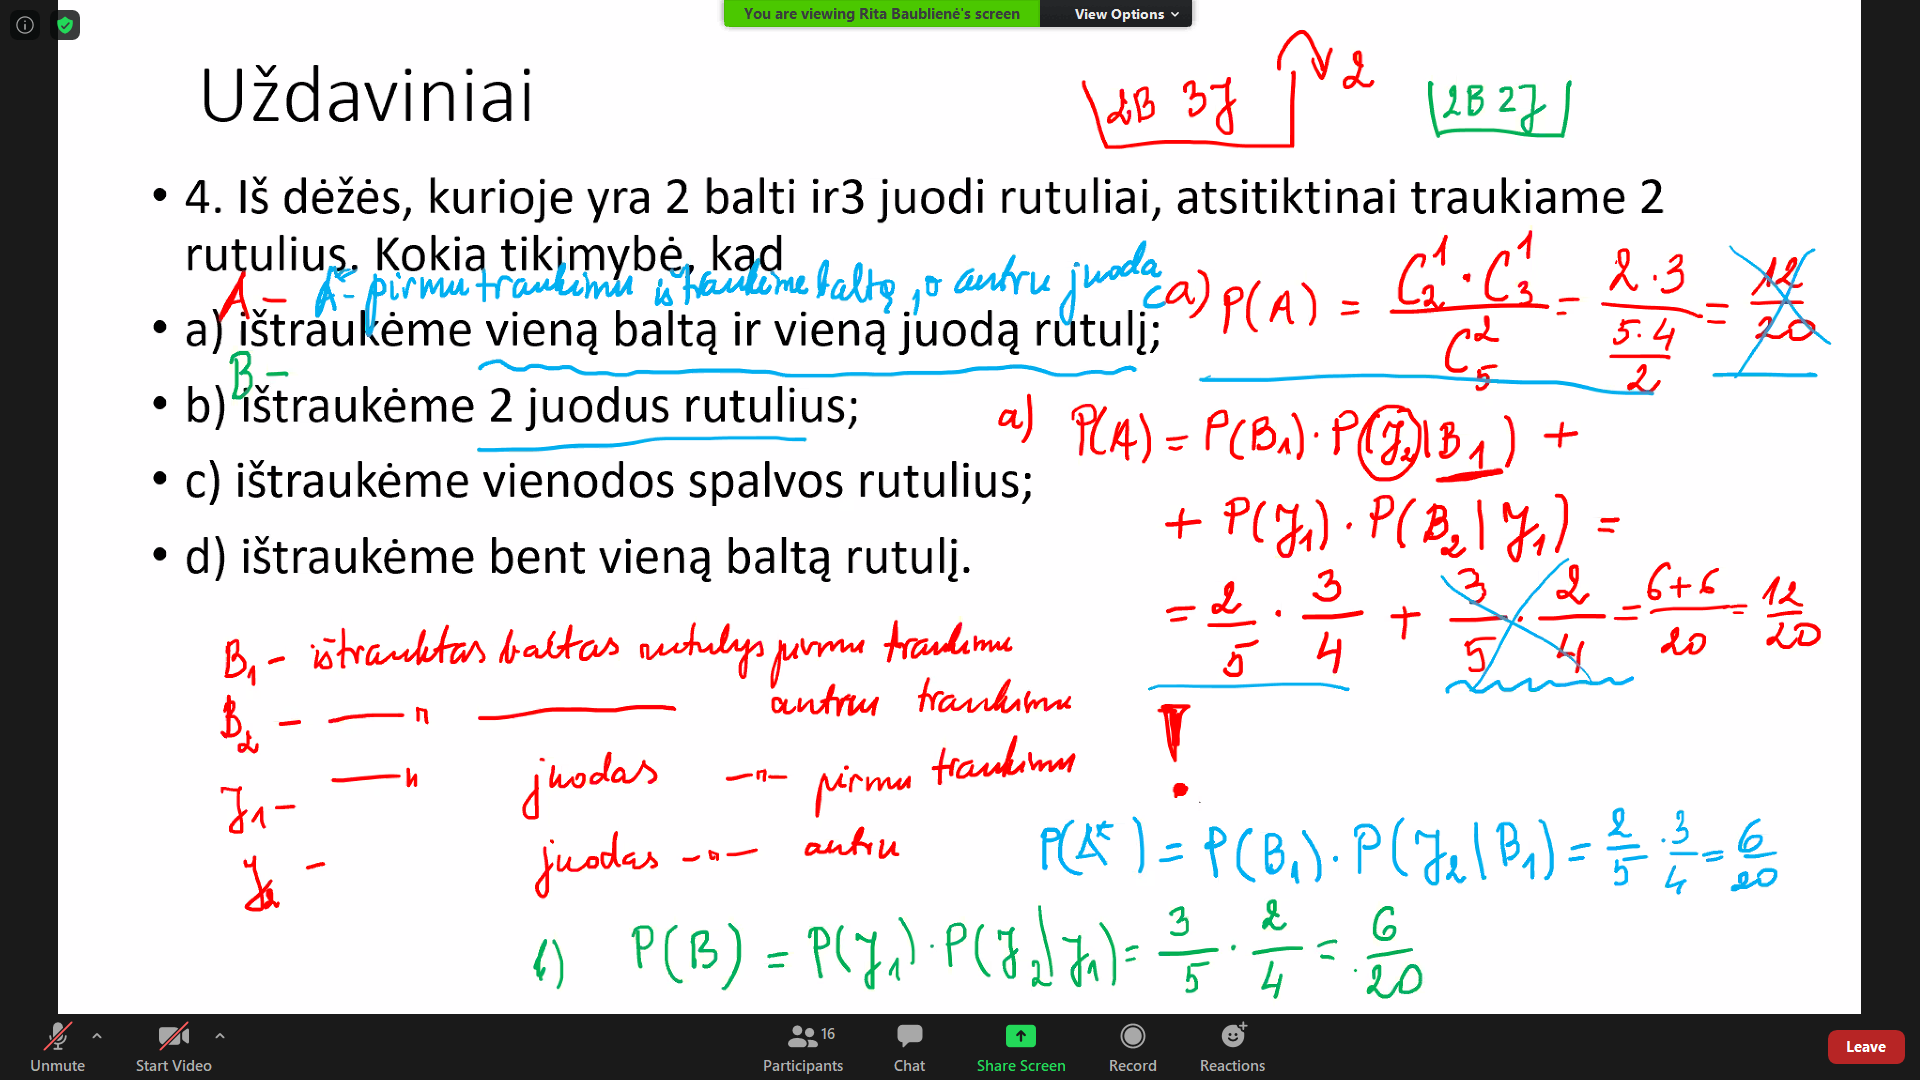 You are viewing Rita Baublienė's screen
View Options
Uždaviniai
2B 3J
2
2B 2J
• 4. Iš dėžės, kurioje yra 2 balti ir3 juodi rutuliai, atsitiktinai traukiame 2
rutulius. Kokia tikimybė, kad
A – A* – pirmu traukimu ištraukėme baltą, o antru juodą
• a) ištraukėme vieną baltą ir vieną juodą rutulį;
B –
• b) ištraukėme 2 juodus rutulius;
• c) ištraukėme vienodos spalvos rutulius;
• d) ištraukėme bent vieną baltą rutulį.
a) P(A) = C₂¹ · C₃¹ / C₅² = 2 · 3 / (5 · 4 / 2) = 12/20
a) P(A) = P(B₁) · P(J₂|B₁) +
+ P(J₁) · P(B₂|J₁) =
= 2/5 · 3/4 + 3/5 · 2/4 = 6+6/20 = 12/20
B₁ – ištrauktas baltas rutulys pirmu traukimu
B₂ – —"— antru traukimu
J₁ – —"— juodas —"— pirmu traukimu
J₂ – juodas —"— antru
!
P(A*) = P(B₁) · P(J₂|B₁) = 2/5 · 3/4 = 6/20
b) P(B) = P(J₁) · P(J₂|J₁) = 3/5 · 2/4 = 6/20
Unmute
Start Video
16
Participants
Chat
Share Screen
Record
Reactions
Leave